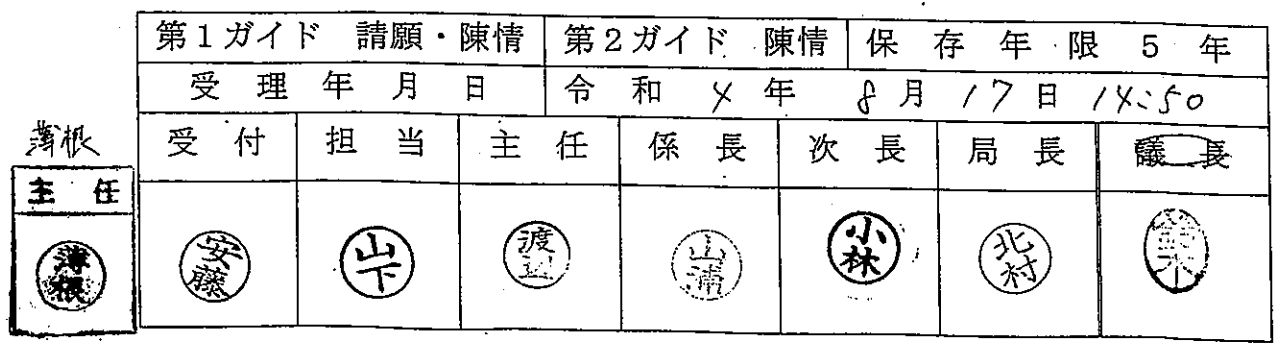 第1ガイド 請願・陳情 第2ガイド 陳情 保存年限5年
受理年月日 令和4年8月17日 14:50
薄根
受付 担当 主任 係長 次長 局長 議長
主任
薄根 安藤 山下 渡辺 山浦 小林 北村